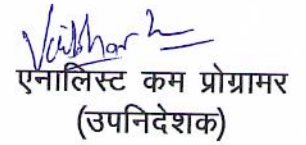 एनालिस्ट कम प्रोग्रामर
(उपनिदेशक)